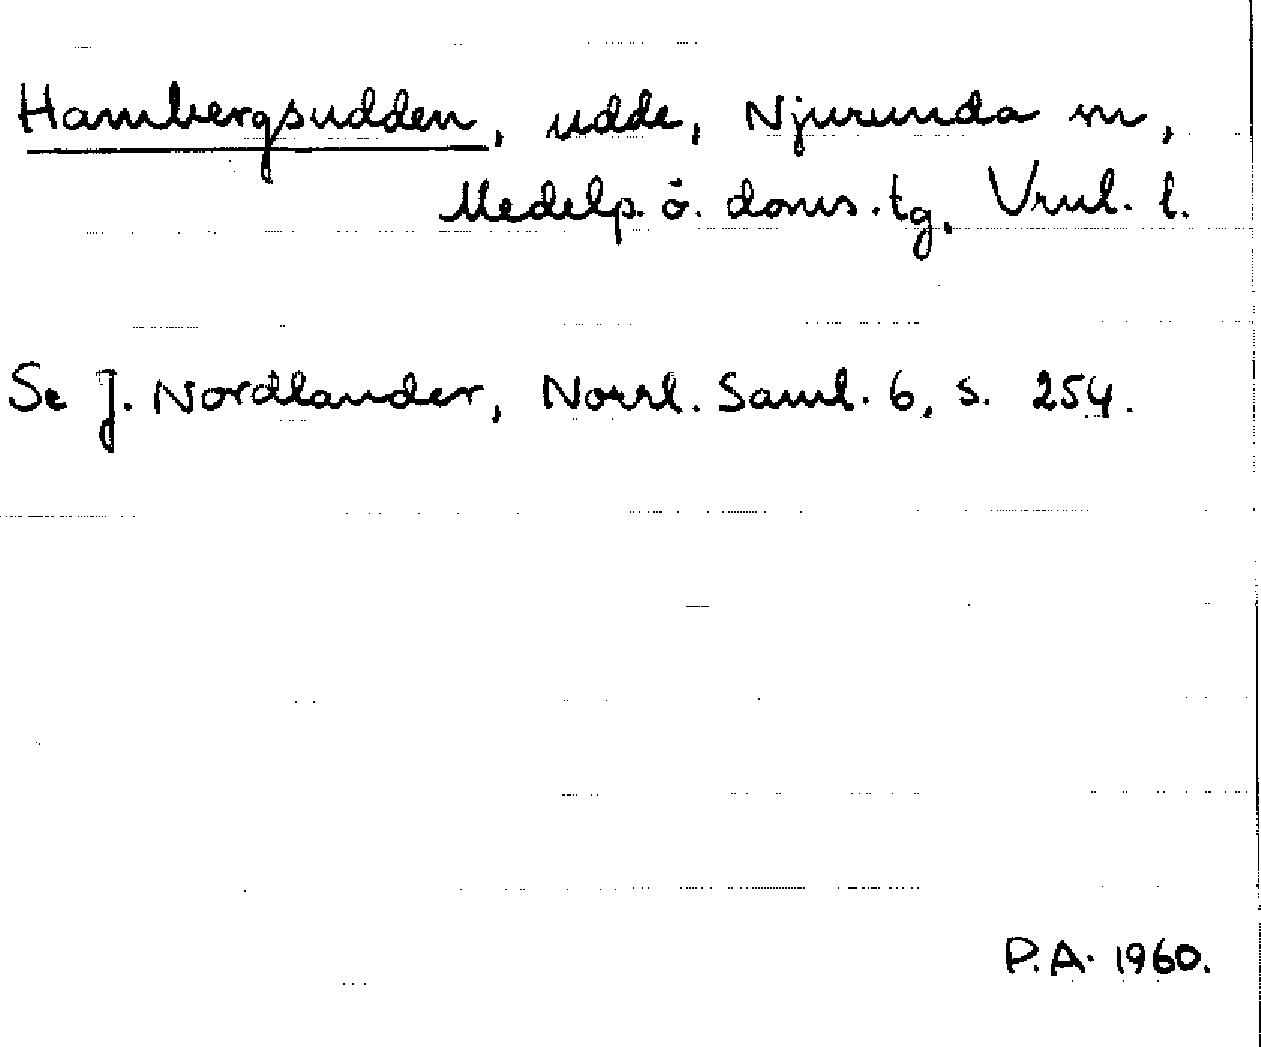 Hambergsudden, udde, Njurunda sn,
Medelp. ö. doms.tg. Vnl. l.
Se J. Nordlander, Norrl. Saml. 6, s. 254.
P.A. 1960.